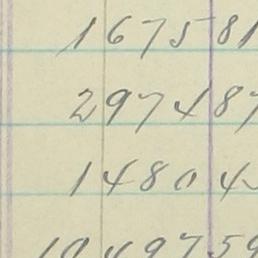 167581
297487
14804
1049759